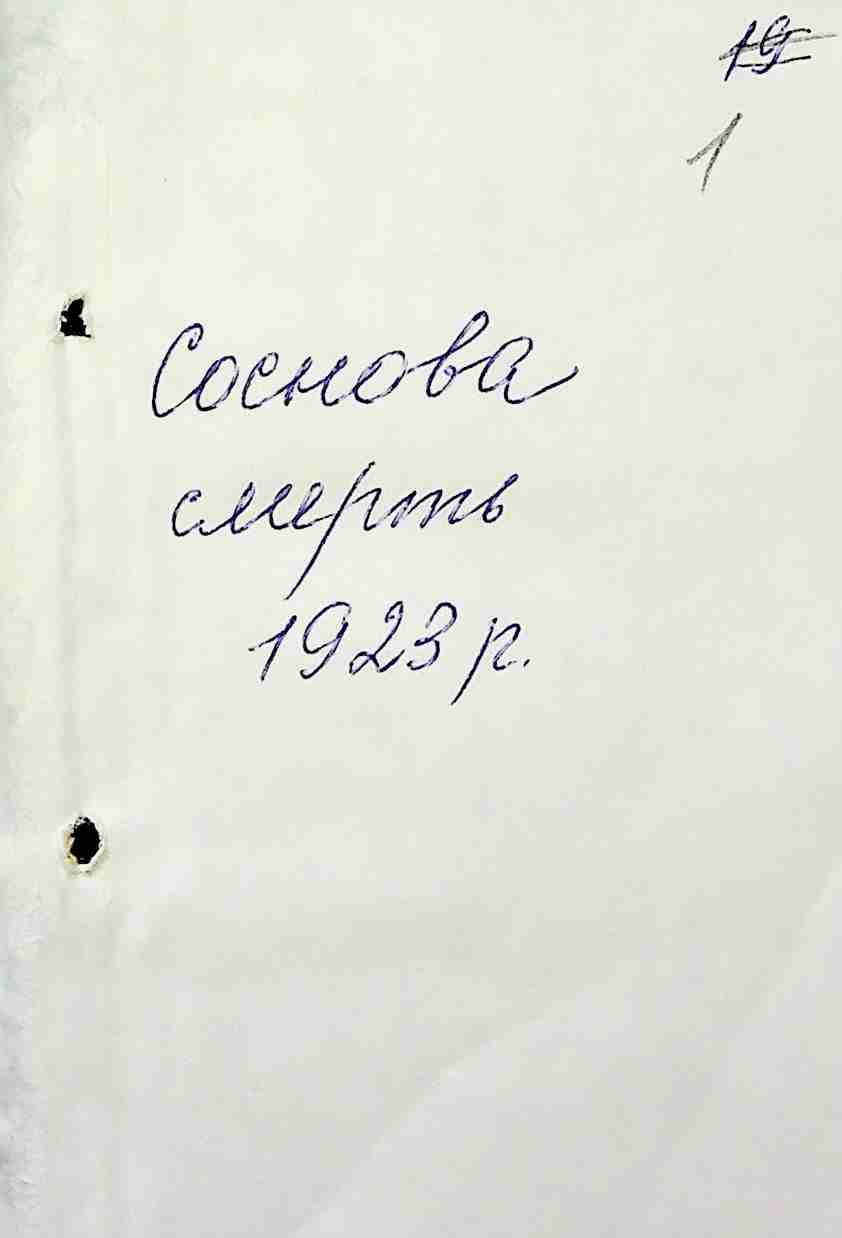 19
1
Соснова
смерть
1923 р.